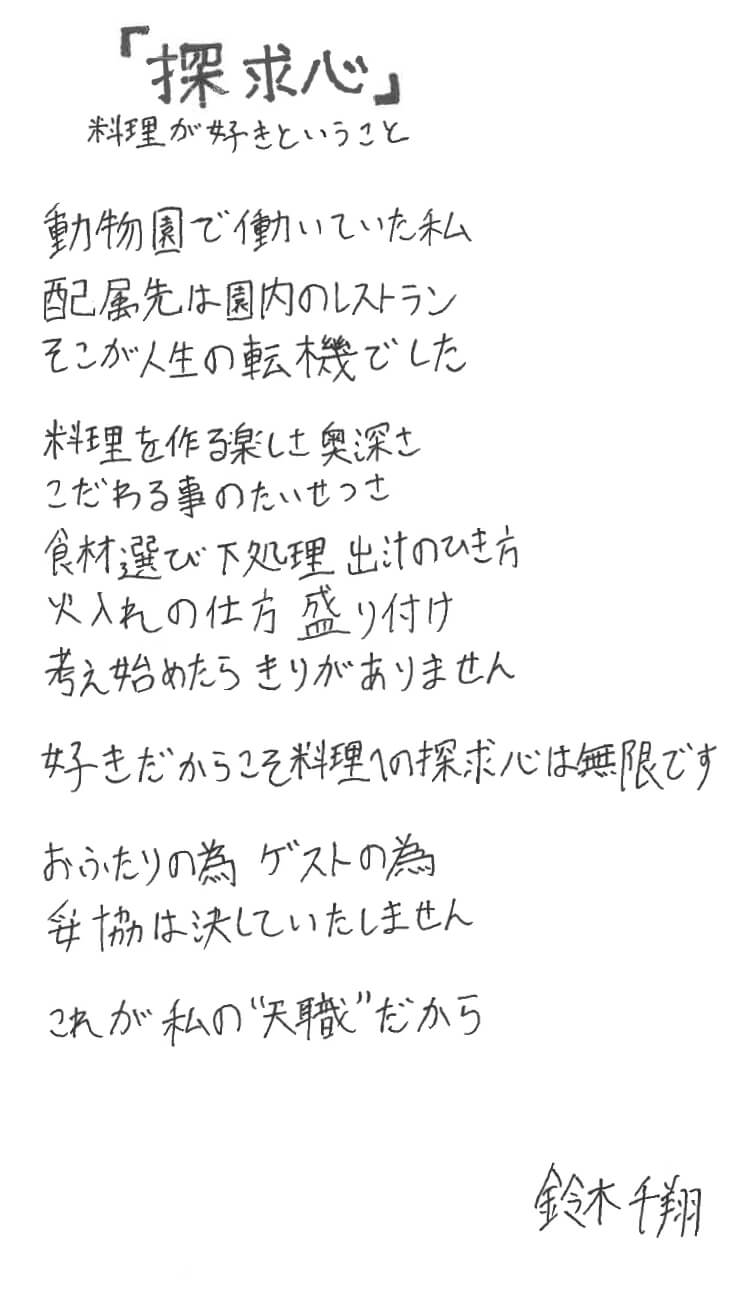 「探求心」
料理が好きということ
動物園で働いていた私
配属先は園内のレストラン
そこが人生の転機でした
料理を作る楽しさ 奥深さ
こだわる事のたいせつさ
食材選び 下処理 出汁のひき方
火入れの仕方 盛り付け
考え始めたら きりがありません
好きだからこそ料理への探求心は無限です
おふたりの為 ゲストの為
妥協は決していたしません
これが私の“天職”だから
鈴木千翔